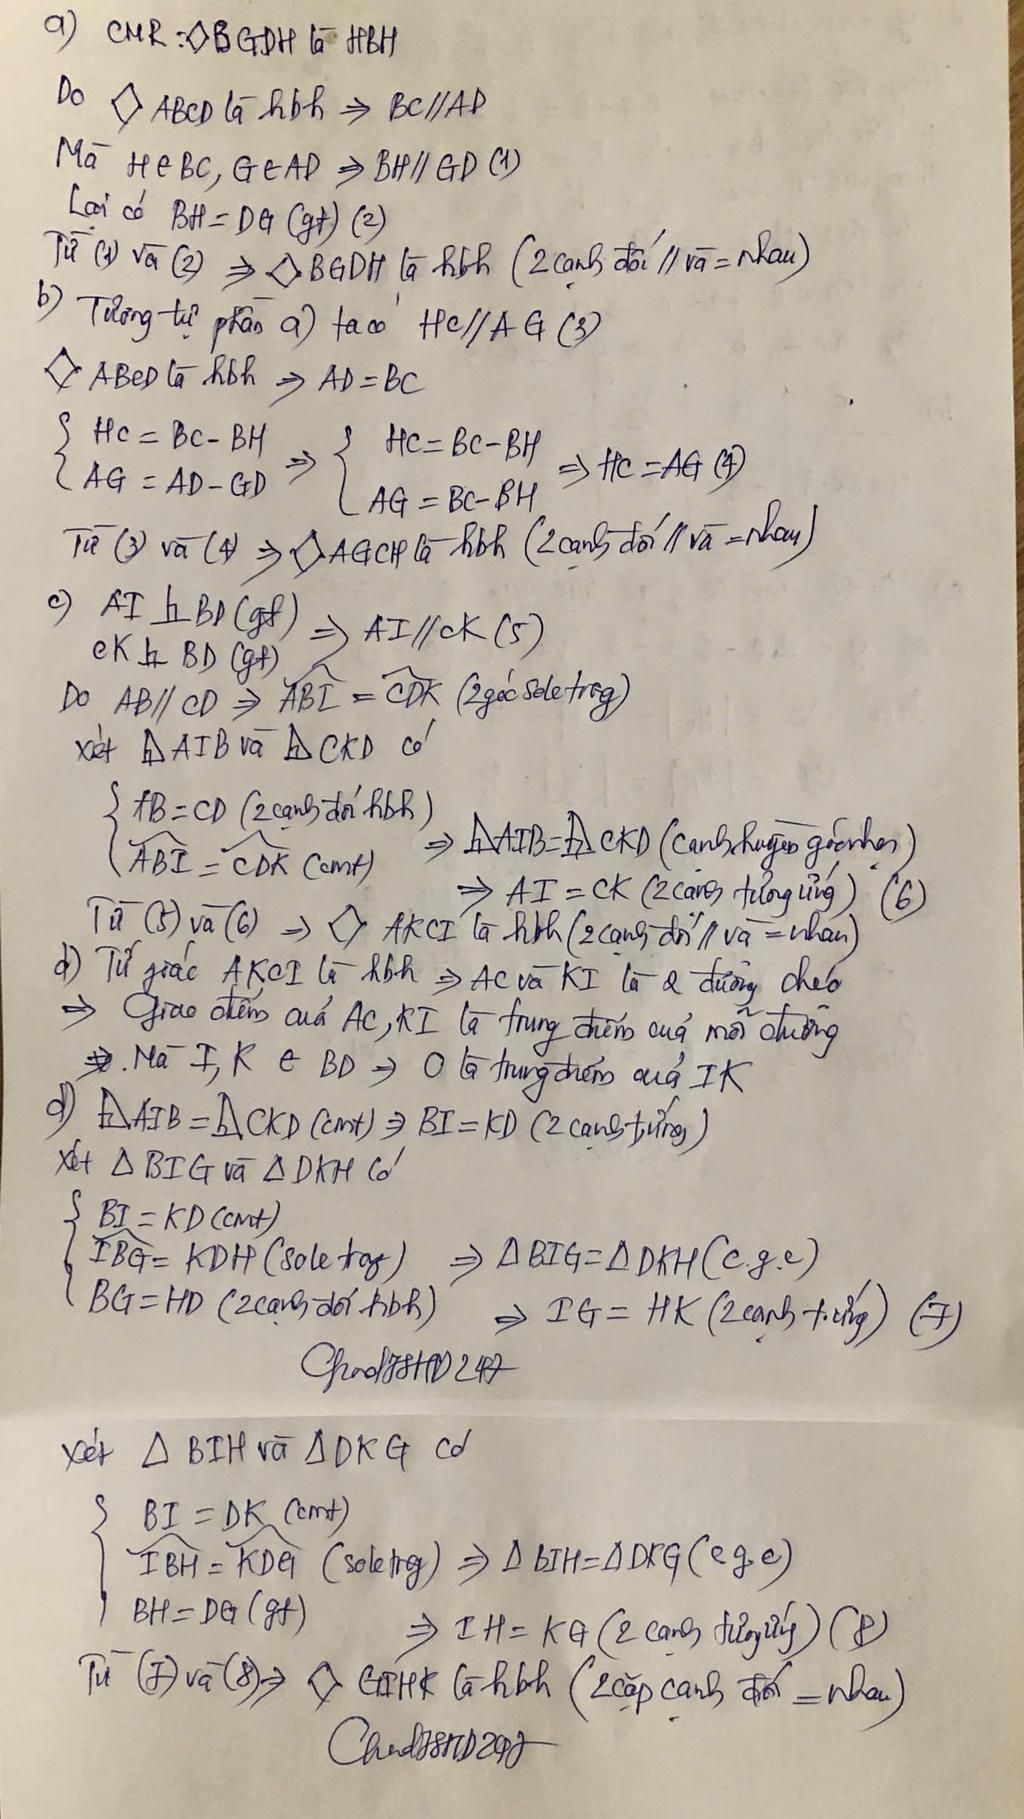 a) CMR: ◇BGDH là HBH
Do ◇ABCD là hbh => BC//AD
Mà H∈BC, G∈AD => BH//GD (1)
Lại có BH=DG (gt) (2)
Từ (1) và (2) => ◇BGDH là hbh (2 cạnh đối // và = nhau)
b) Tương tự phần a) ta có HC//AG (3)
◇ABCD là hbh => AD=BC
{ HC = BC-BH => { HC=BC-BH => HC=AG (4)
AG = AD-GD AG=BC-BH
Từ (3) và (4) => ◇AGCH là hbh (2 cạnh đối // và = nhau)
c) AI ⊥ BD (gt) => AI//CK (5)
CK ⊥ BD (gt)
Do AB//CD => ABI = CDK (2 góc sole trg)
Xét ΔAIB và ΔCKD có
{ AB=CD (2 cạnh đối hbh)
ABI = CDK (cmt) => ΔAIB=ΔCKD (cạnh huyền góc nhọn)
=> AI = CK (2 cạnh tương ứng) (6)
Từ (5) và (6) => ◇ AKCI là hbh (2 cạnh đối // và = nhau)
d) Tứ giác AKCI là hbh => AC và KI là 2 đường chéo
=> Giao điểm của AC, KI là trung điểm của mỗi đường
=> Mà I, K ∈ BD => O là trung điểm của IK
đ) ΔAIB=ΔCKD (cmt) => BI=KD (2 cạnh t.ứng)
Xét ΔBIG và ΔDKH có
{ BI=KD (cmt)
IBG = KDH (sole trog) => ΔBIG=ΔDKH (c.g.c)
BG=HD (2 cạnh đối hbh) => IG = HK (2 cạnh t.ứng) (7)
Xét Δ BIH và ΔDKG có
{ BI = DK (cmt)
IBH = KDG (sole trog) => ΔBIH=ΔDKG (c.g.c)
BH=DG (gt) => IH = KG (2 cạnh tương ứng) (8)
Từ (7) và (8) => ◇ GIHK là hbh (2 cặp cạnh đối = nhau)